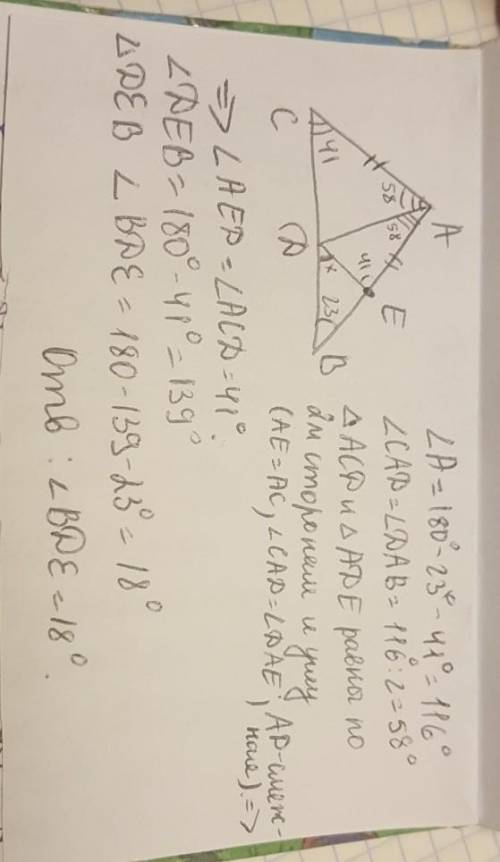 A
C
41
58
58
D
x
41
E
23
B
∠A = 180° - 23° - 41° = 116°
∠CAD = ∠DAB = 116° : 2 = 58°
△ACD и △ADE равны по
2м сторонам и углу
(AE = AC, ∠CAD = ∠DAE, AD - смеж-
ная) =>
=> ∠AED = ∠ACD = 41°
∠DEB = 180° - 41° = 139°
△DEB ∠BDE = 180 - 139 - 23° = 18°
Отв : ∠BDE = 18°.